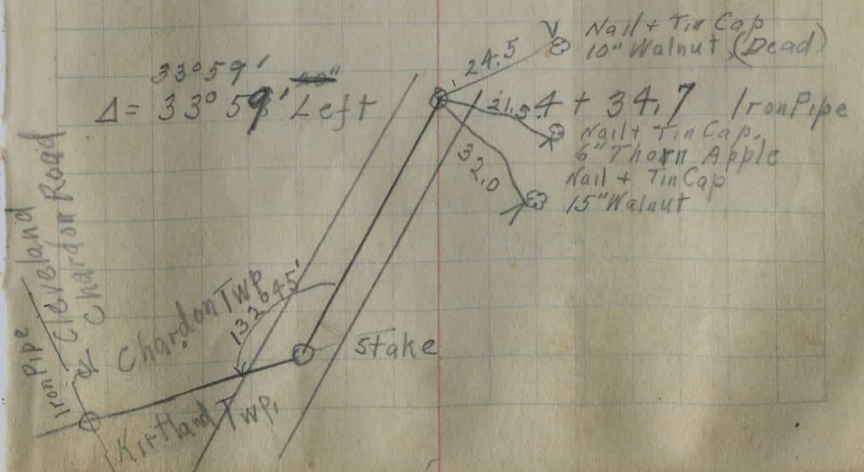 33°59'
Δ= 33°59' Left
24.5
Nail + Tin Cap
10" Walnut (Dead)
21.5
4 + 34.7 Iron Pipe
Nail + Tin Cap.
6" Thorn Apple
32.0
Nail + Tin Cap
15" Walnut
Iron Pipe
Cleveland
Chardon Road
Chardon Twp
132°45'
Stake
Kirtland Twp.